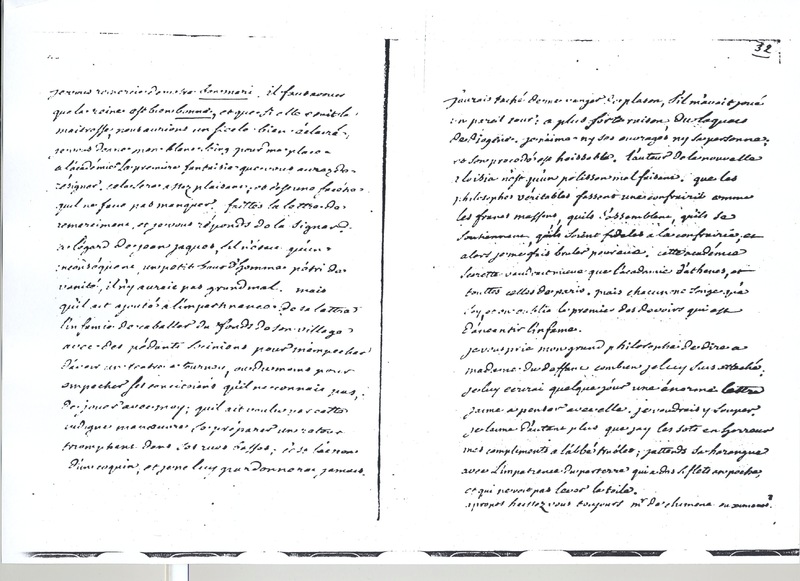 je vous remercie de notre Il faut avouer
que la reine est bien bonne, et que si elle etait la
maitresse, nous aurions un siecle bien éclairé.
je vous donne mon blanc seing pour ma place
a l'académie la premiere fantaisie que vous aurez de
résigner, cela sera assez plaisant; et c'est une facétie
quil ne faut pas manquer. faittes la lettre de
remerciment, et je vous réponds de la signer.
a l'égard de jean jaques, s'il n'était qu'un
inconséquent, un petit bout d'homme pétri de
vanité, il n'y aurait pas grand mal. mais
qu'il ait ajouté à l'impertinence de sa lettre
l'infamie de cabaler du fonds de son village
avec des pédants sociniens pour m'empecher
d'avoir un teatre a tourney, ou du moins pour
empecher ses concitoiens qu'il ne connait pas,
de jouer avec moy; qu'il ait voulu par cette
indigne manœuvre se préparer un retour
triomphant dans ses rues basses; c'est l'action
d'un coquin, et je ne luy pardonnerai jamais.
32
j'aurais taché de me vanger de platon, s'il m'avait joué
un pareil tour; a plus forte raison du laquais
de Diogene. je n'aime ny ses ouvrages ny sa personne,
et son procedé est haissable. l'auteur de la nouvelle
aloisia n'est qu'un polisson malfaisant. que les
philosophes véritables fassent une confrairie comme
les francs massons, qu'ils s'assemblent, qu'ils se
soutiennent, qu'ils soient fideles a la confrairie, et
alors je me fais bruler pour eux. cette académie
secrette vaudrait mieux que l'académie d'athenes, et
touttes celles de paris. mais chacun ne songe qu'a
soy, et on oublie le premier des devoirs qui est
d'anéantir l'infame.
je vous prie mon grand philosophe de dire a
madame du deffant combien je luy suis attaché.
je luy ecrirai quelque jour une énorme lettre
j'aime a penser avec elle. je voudrais y souper.
je l'aime d'autant plus que j'ay les sots en horreur
mes compliments a l'abbé trublet; j'attends sa harangue
avec l'impatience du parterre qui a des sifflets en poche,
et qui ne voit pas lever la toile.
a propos haissez vous toujours mr. de